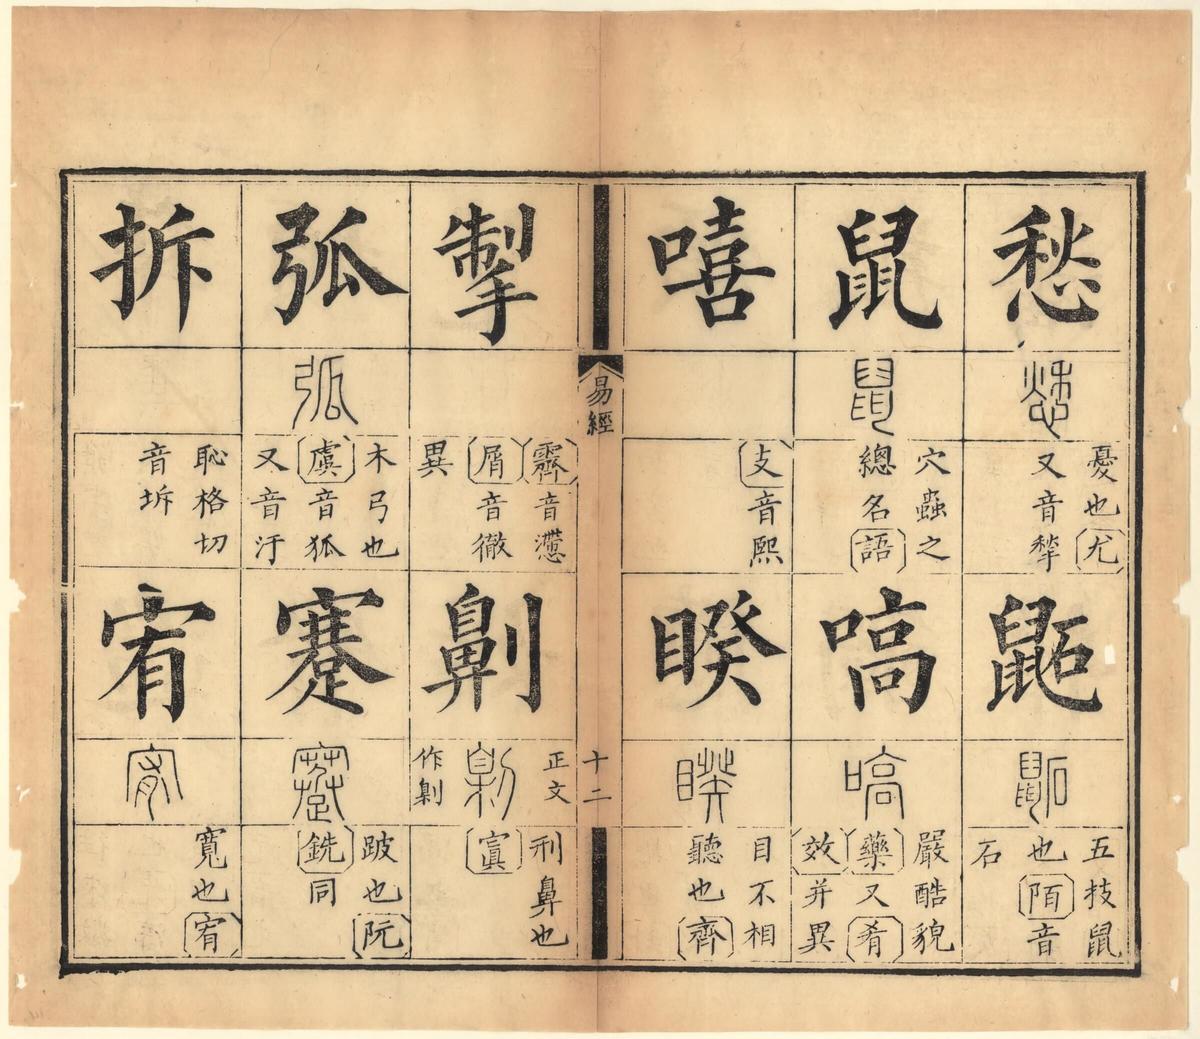 愁
愁
憂也尤
又音揫
鼫
鼫
五技鼠
也陌音
石
鼠
鼠
穴蟲之
總名語
嗃
嗃
嚴酷貌
藥又肴
效并異
嘻
支音熙
睽
睽
目不相
聽也齊
易經
十二
掣
霽音懘
屑音徹
異
劓
正文
㓷
作㓷
刑鼻也
寘
弧
弧
木弓也
虞音狐
又音汙
蹇
蹇
跛也阮
銑同
拆
恥格切
音坼
宥
宥
寬也宥